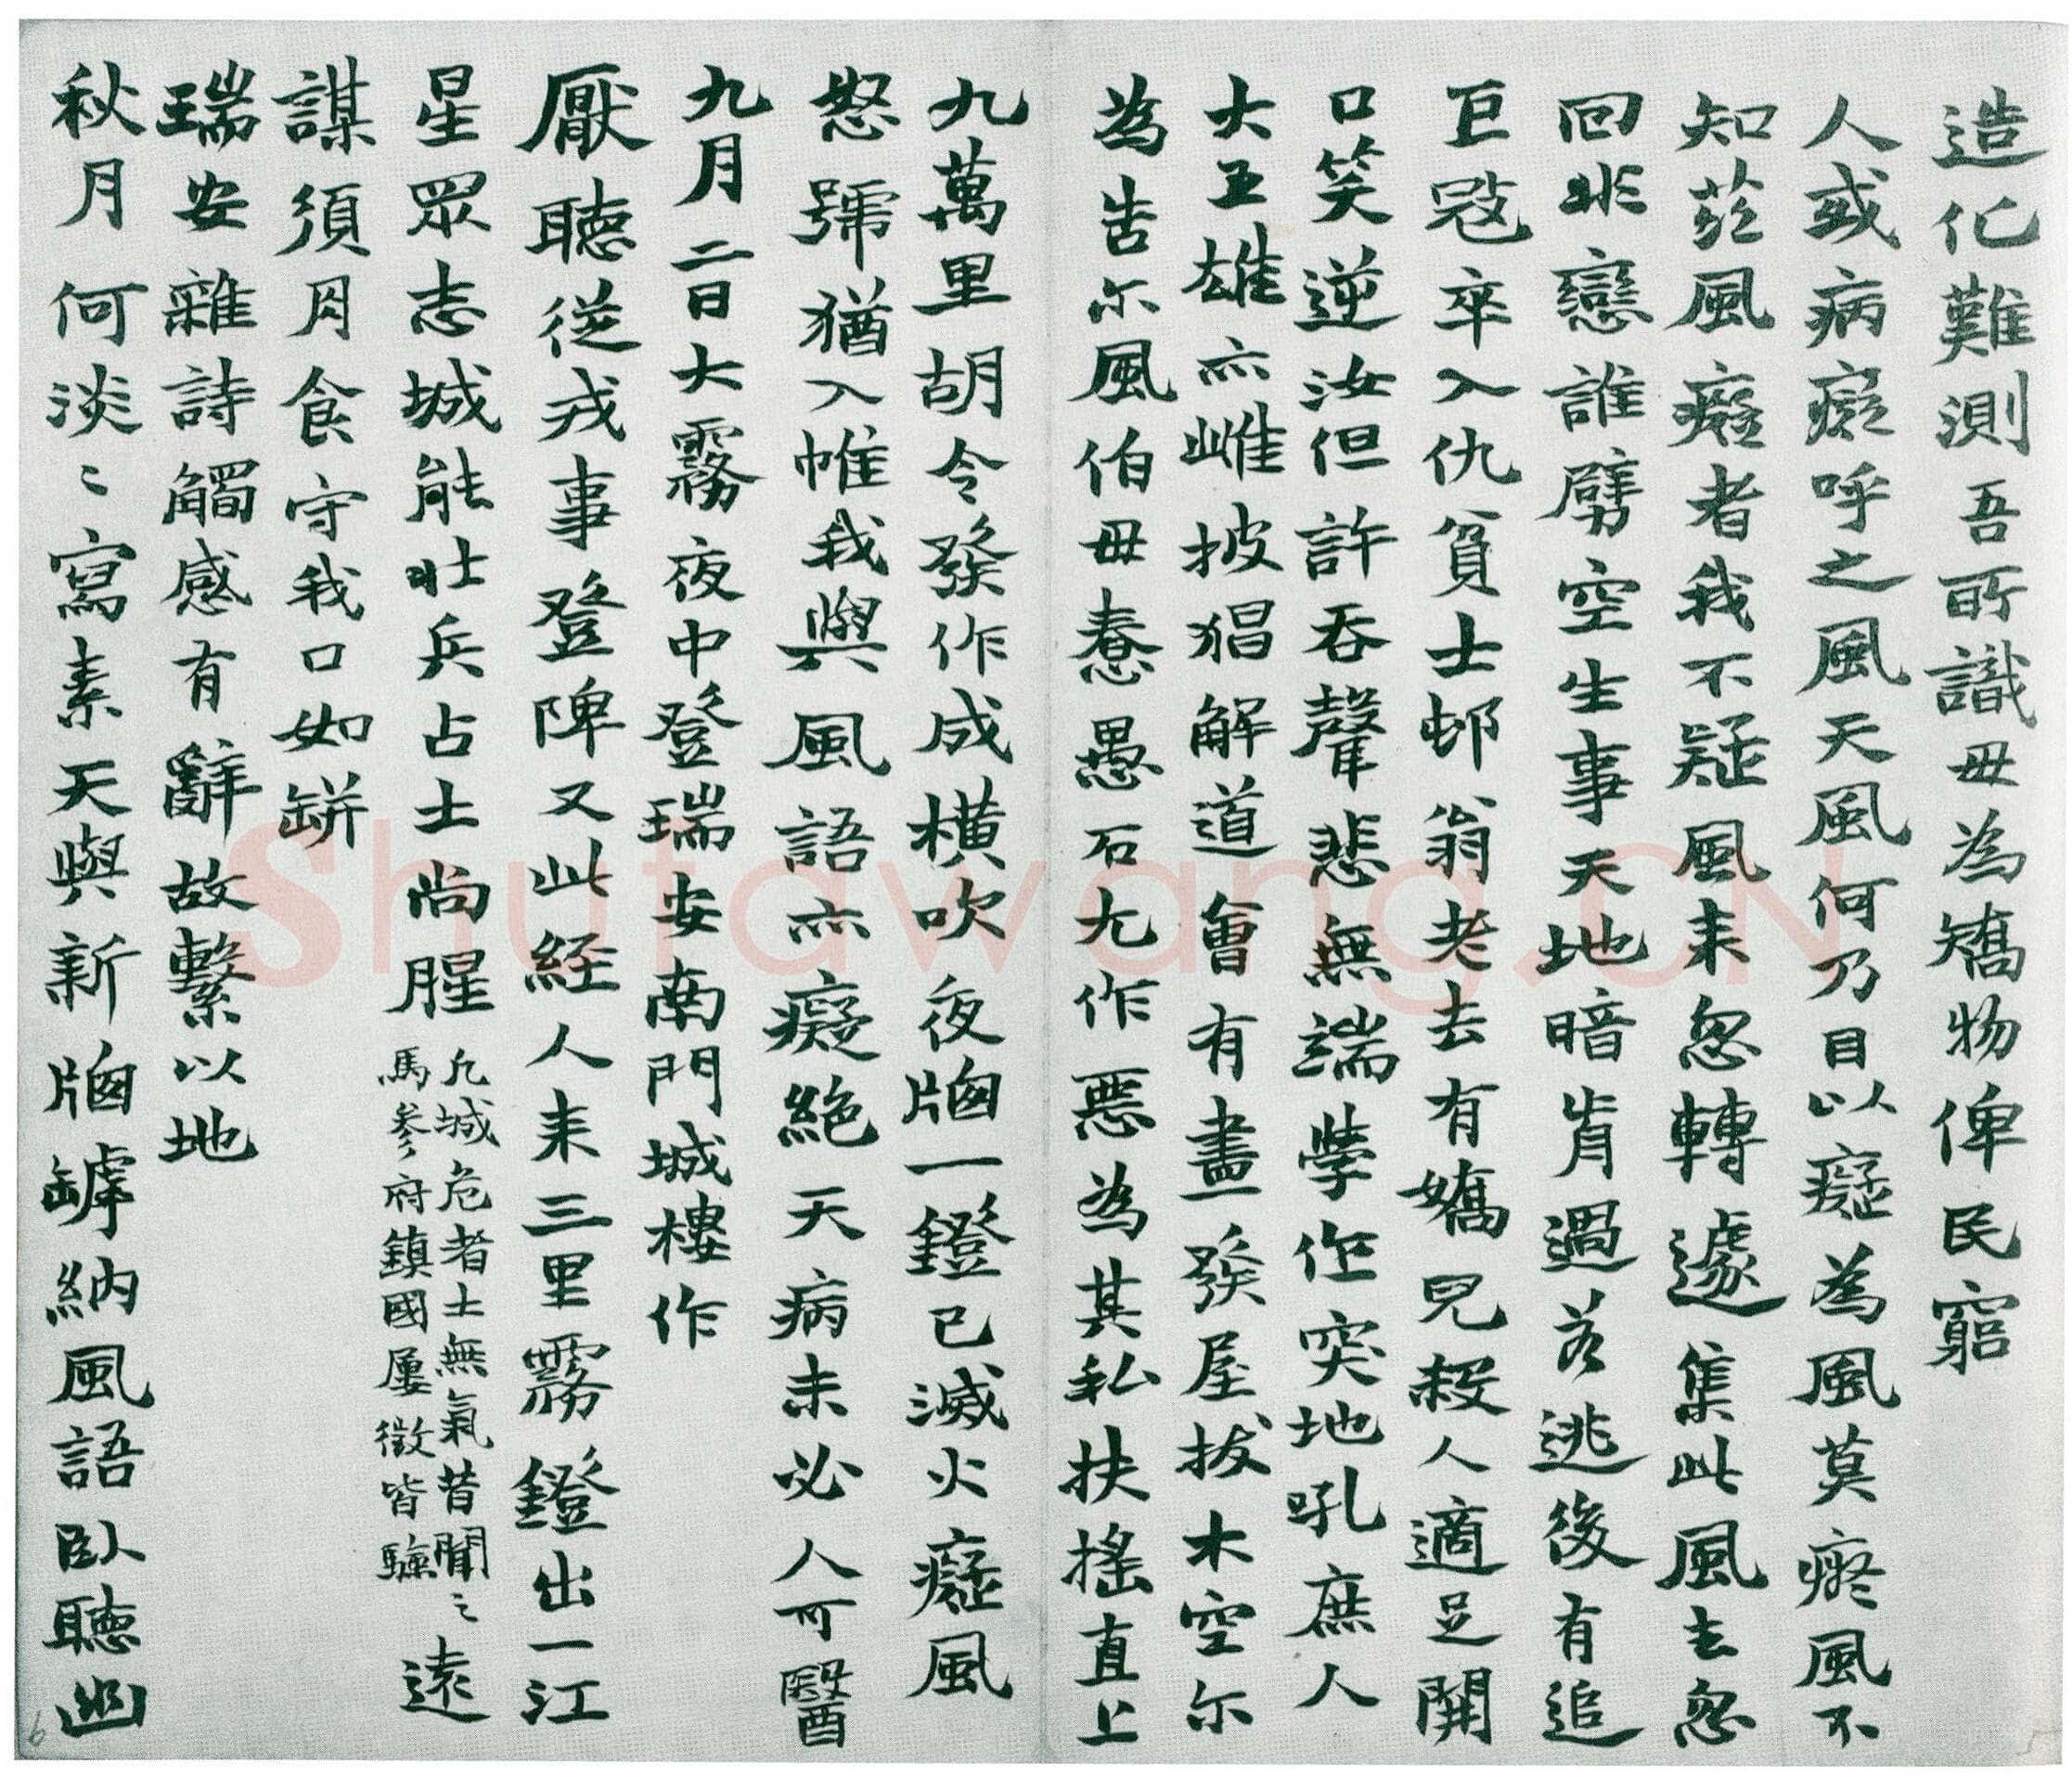 造化難測吾所識毋為矯物俾民窮
人或病癡呼之風天風何乃目以癡為風莫瘳風不
知範風癡者我不疑風来忽轉遽集此風去忽
回非戀誰劈空生事天地暗肯過若逃後有追
巨寇卒入仇貧士邨翁老去有嬌兒殺人適足開
口笑逆汝但許吞聲悲無端學作突地吼庶人
大王雄亦雌披猖解道會有盡發屋拔木空尔
為告尔風伯毋惷愚石尤作惡為其私扶搖直上
九萬里胡令發作成橫吹夜牕一鐙已滅火癡風
怒號猶入帷我與風語亦癡絕天病未必人可醫
九月二日大霧夜中登瑞安南門城樓作
厭聽從戎事登陴又此経人来三里霧鐙出一江
星眾志城能壯兵占土尚腥
凡城危者土無氣昔聞之
馬參府鎮國屢徵皆驗
遠
謀須肉食守我口如缾
瑞安雜詩觸感有辭故繫以地
秋月何淡〻寫素天與新牕罅納風語臥聽幽
Shufawang.CN
6
5